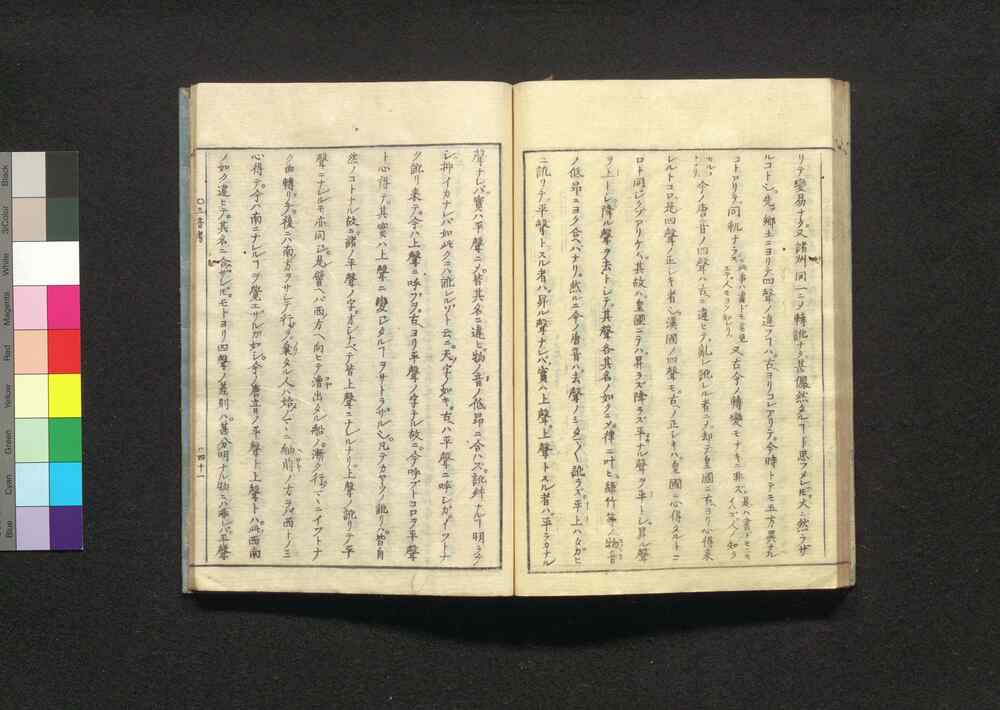 リテ變易ナク又諸州同一ニメ轉訛ナク甚儼然タルヿト思フメレ𪜈大ニ然ラザ
ルコトゾ先鄕土ニヨリテ四聲ノ違フヿハ古ヨリコレアリテ今時トテモ五方異ナル
コトアリテ同軌ナラズ 又古今ノ轉變モナキニ非ズ
今ノ唐音ノ四聲ハ古ニ違ヒテ亂レ訛レル者ニメ却テ皇國ニ古ヨリ心得來
レルトコロ是四聲ノ正レキ者ゾ漢國ノ四聲モ古ノ正レキハ皇國ニ心得タルトコ
ロト同レクゾアリケム其故ハ皇國ニテハ昇ラズ降ラズ平ナル聲ヲ平トレ昇ル聲
ヲ上トレ降ル聲ヲ去トレテ其聲各其名ノ如クニメ律ニ叶ヒ絲竹等ノ物音
ノ低昂ニヨク合ヘバナリ然ルニ今ノ唐音ハ去聲ノミ訛ラズ平上ハタガヒ
ニ訛リテ平聲トスル者ハ昇ル聲ナレバ實ハ上聲上聲トスル者ハ平ラカナル
聲ナレバ實ハ平聲ニメ皆其名ニ違ヒ物ノ音ノ低昂ニ合ハズ訛舛ナルヿ明ラケ
シ抑イカナレバ如此クニハ訛レルゾト云ニ天字ノ如キ古ハ平聲ニ呼レガイツトナ
ク訛リ來テ今ハ上聲ニ呼フヲ古ヨリ平聲ノ字ナル故ニ今呼ブトコロヲ平聲
ト心得テ其實ハ上聲ニ變ゼタルヿヲサトラザルゾ凡テカヤウノ訛リハ皆自
然ノコトナル故ニ諸ノ平聲ノ字オレナベテ皆上聲ニナレルナリ上聲ノ訛リテ平
聲ニナレルモ亦同ジ是譬ヘバ西方ヘ向ヒテ漕出タル船ノ漸ク行マニイツトナ
ク曲轉リテ後ニハ南方ヲサレテ行ヲ乘タル人ハ始ノマニ舳前ノ方ヲバ西トノミ
心得テ今ハ南ニナレルヿヲ覺エザルガ如レ今ノ唐音ノ平聲ト上聲トハ此西南
ノ如ク違ヒテ其名ニ合ザレ𪜈モトヨリ四聲ノ差別ハ甚分明ナル物ニハ非レバ平聲
〇三音考
四十一
Blue
Cyan
Green
Yellow
Red
Magenta
White
3/Color
Black